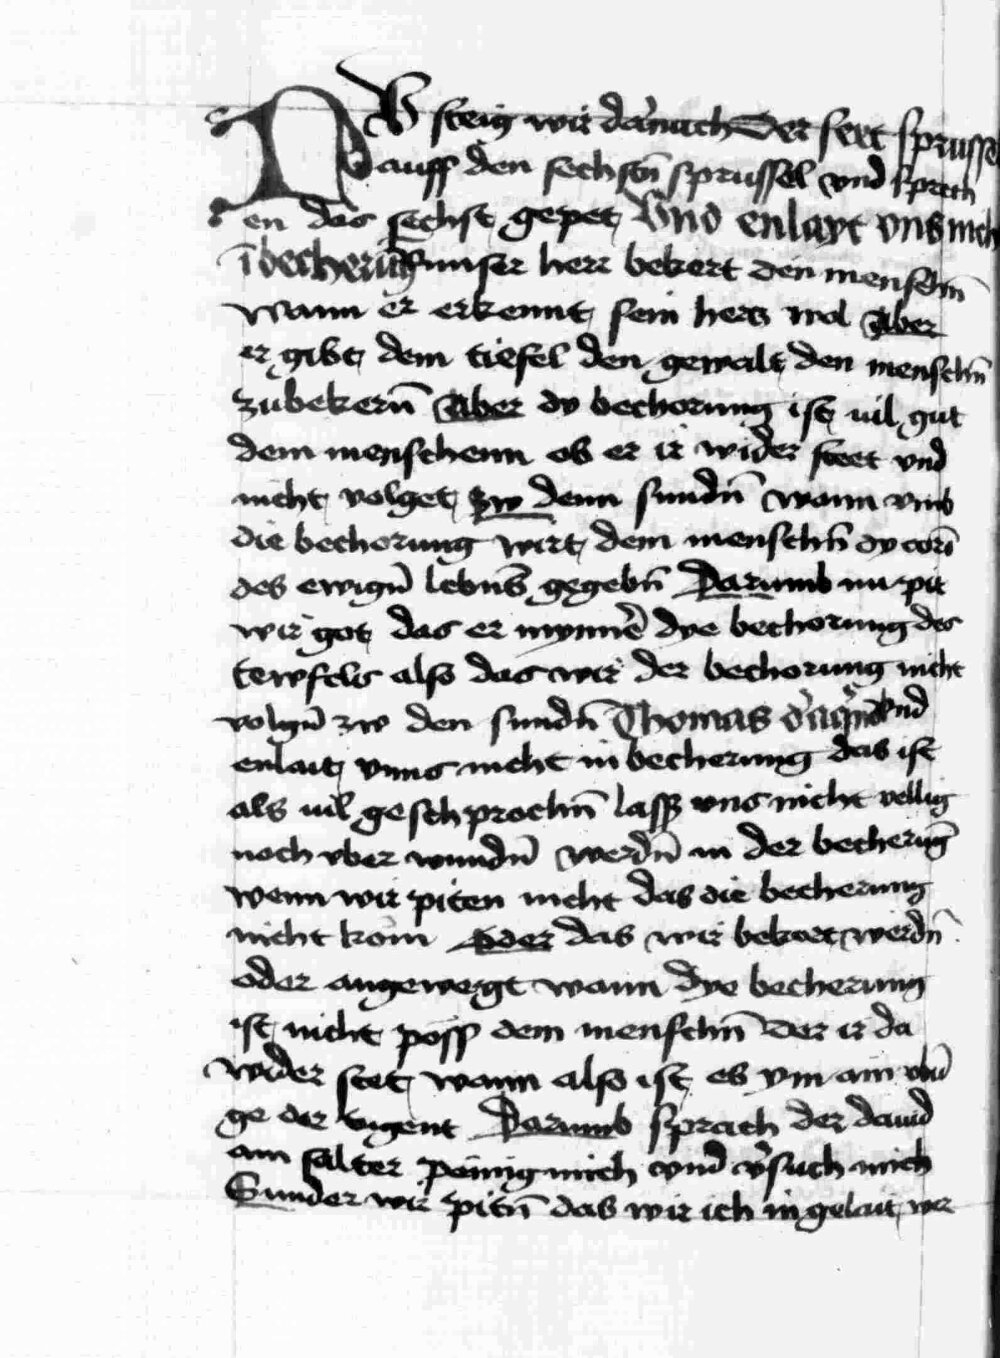 NV steig wir darnach Der sext sprussel
auff den sechstn̄ sprussel vnd sprech
en das sechst gepet Vnd enlayt vns nich
ī becherūg Vnnser herr bekert den menschn̄
wann er erkennt sein hercz wol Aber
er gibt dem tiefel den gewalt den menschn̄
zubekern̄ Aber dy bechorung ist uil gut
dem menschenn ob er ir wider steet vnd
nicht volget zw denn sundn̄ wann vmb
die bechorung wirt dem menschn̄ dy corn̄
des ewign̄ lebns̄ gegebn̄ Darumb nu pit
wir got das er mynnē dye bechorung des
tewfels also das wir der bechorung nicht
volgn̄ zw den sundn̄ Thomas d'aq̄no Vnd
enlait vnns nicht in becherung das ist
als uil geschprochn̄ lass vns nicht vellig
noch vber wundn̄ werdn̄ in der becherūg
wenn wir piten nicht das die becherung
nicht kom oder das wir bekort werdn̄
oder angewegt wann dye becherung
ist nicht poss dem menschn̄ der ir da
wider stet wann also ist es ym ain vbū
ge der tugent Darumb sprach der dauid
am salter peinig mich vnd v'such mich
Sunder wir pitn̄ das wir ich in gelait wer